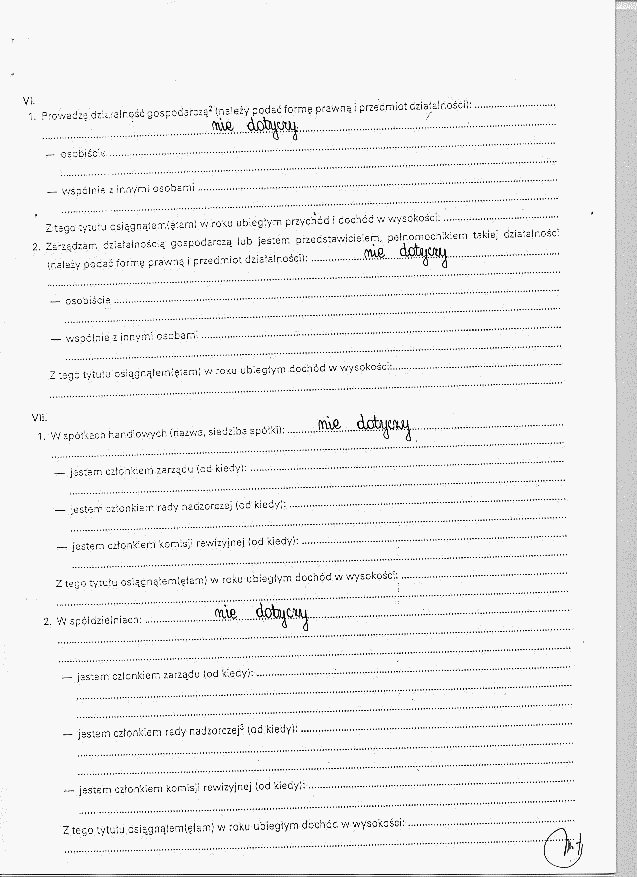 VI.
1. Prowadzę działalność gospodarczą² (należy podać formę prawną i przedmiot działalności): ..............
nie dotyczy
— osobiście
— wspólnie z innymi osobami
Z tego tytułu osiągnąłem(ęłam) w roku ubiegłym przychód i dochód w wysokości:
2. Zarządzam działalnością gospodarczą lub jestem przedstawicielem, pełnomocnikiem takiej działalności
(należy podać formę prawną i przedmiot działalności): nie dotyczy
— osobiście
— wspólnie z innymi osobami
Z tego tytułu osiągnąłem(ęłam) w roku ubiegłym dochód w wysokości:
VII.
1. W spółkach handlowych (nazwa, siedziba spółki): nie dotyczy
— jestem członkiem zarządu (od kiedy):
— jestem członkiem rady nadzorczej (od kiedy):
— jestem członkiem komisji rewizyjnej (od kiedy):
Z tego tytułu osiągnąłem(ęłam) w roku ubiegłym dochód w wysokości:
2. W spółdzielniach: nie dotyczy
— jestem członkiem zarządu (od kiedy):
— jestem członkiem rady nadzorczej³ (od kiedy):
— jestem członkiem komisji rewizyjnej (od kiedy):
Z tego tytułu osiągnąłem(ęłam) w roku ubiegłym dochód w wysokości: